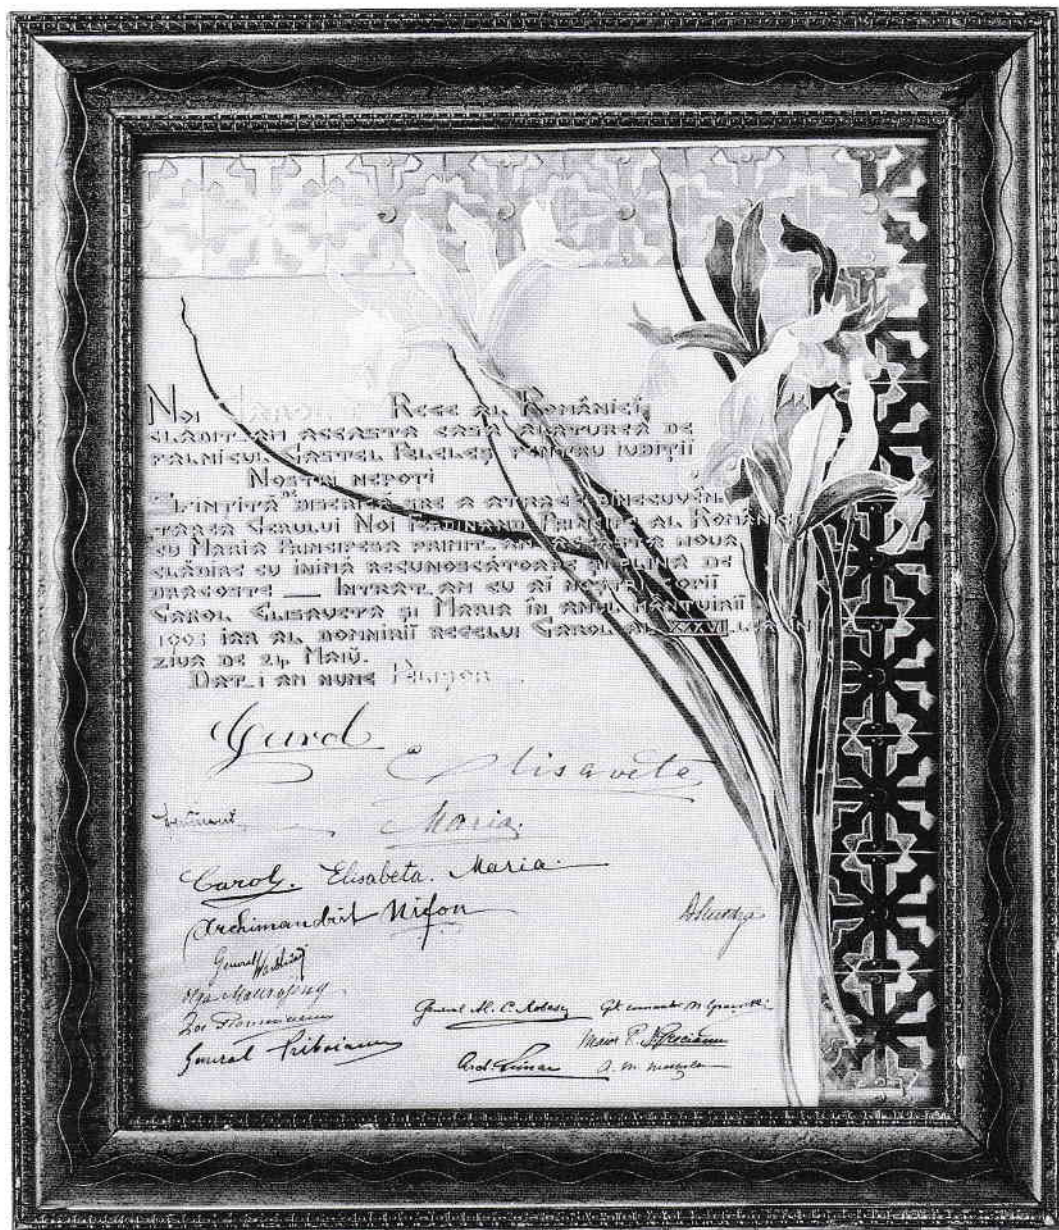 Noi Carol I Rege al României,
clădit_am aceasta casă alăturea de
falnicul Castel Peleleș pentru iubiții
Noștri nepoți
Sfințita biserică ne a atras binecuvân
tarea Cerului Noi Ferdinand Principe al României
cu Maria Principesa primit_am aceasta noua
clădire cu inimă recunoscătoare și plină de
dragoste _ Intrat_am cu ai noștri copii
Carol Elisaveta și Maria în anul mântuirii
1903 iar al domnirii regelui Carol al XXXVII_lea în
ziua de 24 Maiŭ.
Dat_i am nume Pelișor
Carol
Elisaveta
Ferdinand
Maria
Carol. Elisabeta. Maria
Archimandrit Nifon
General
Olga Mavrojeny
Zoe
General Priboianu
General M. C.
Maior P.
Ard.
A. M.